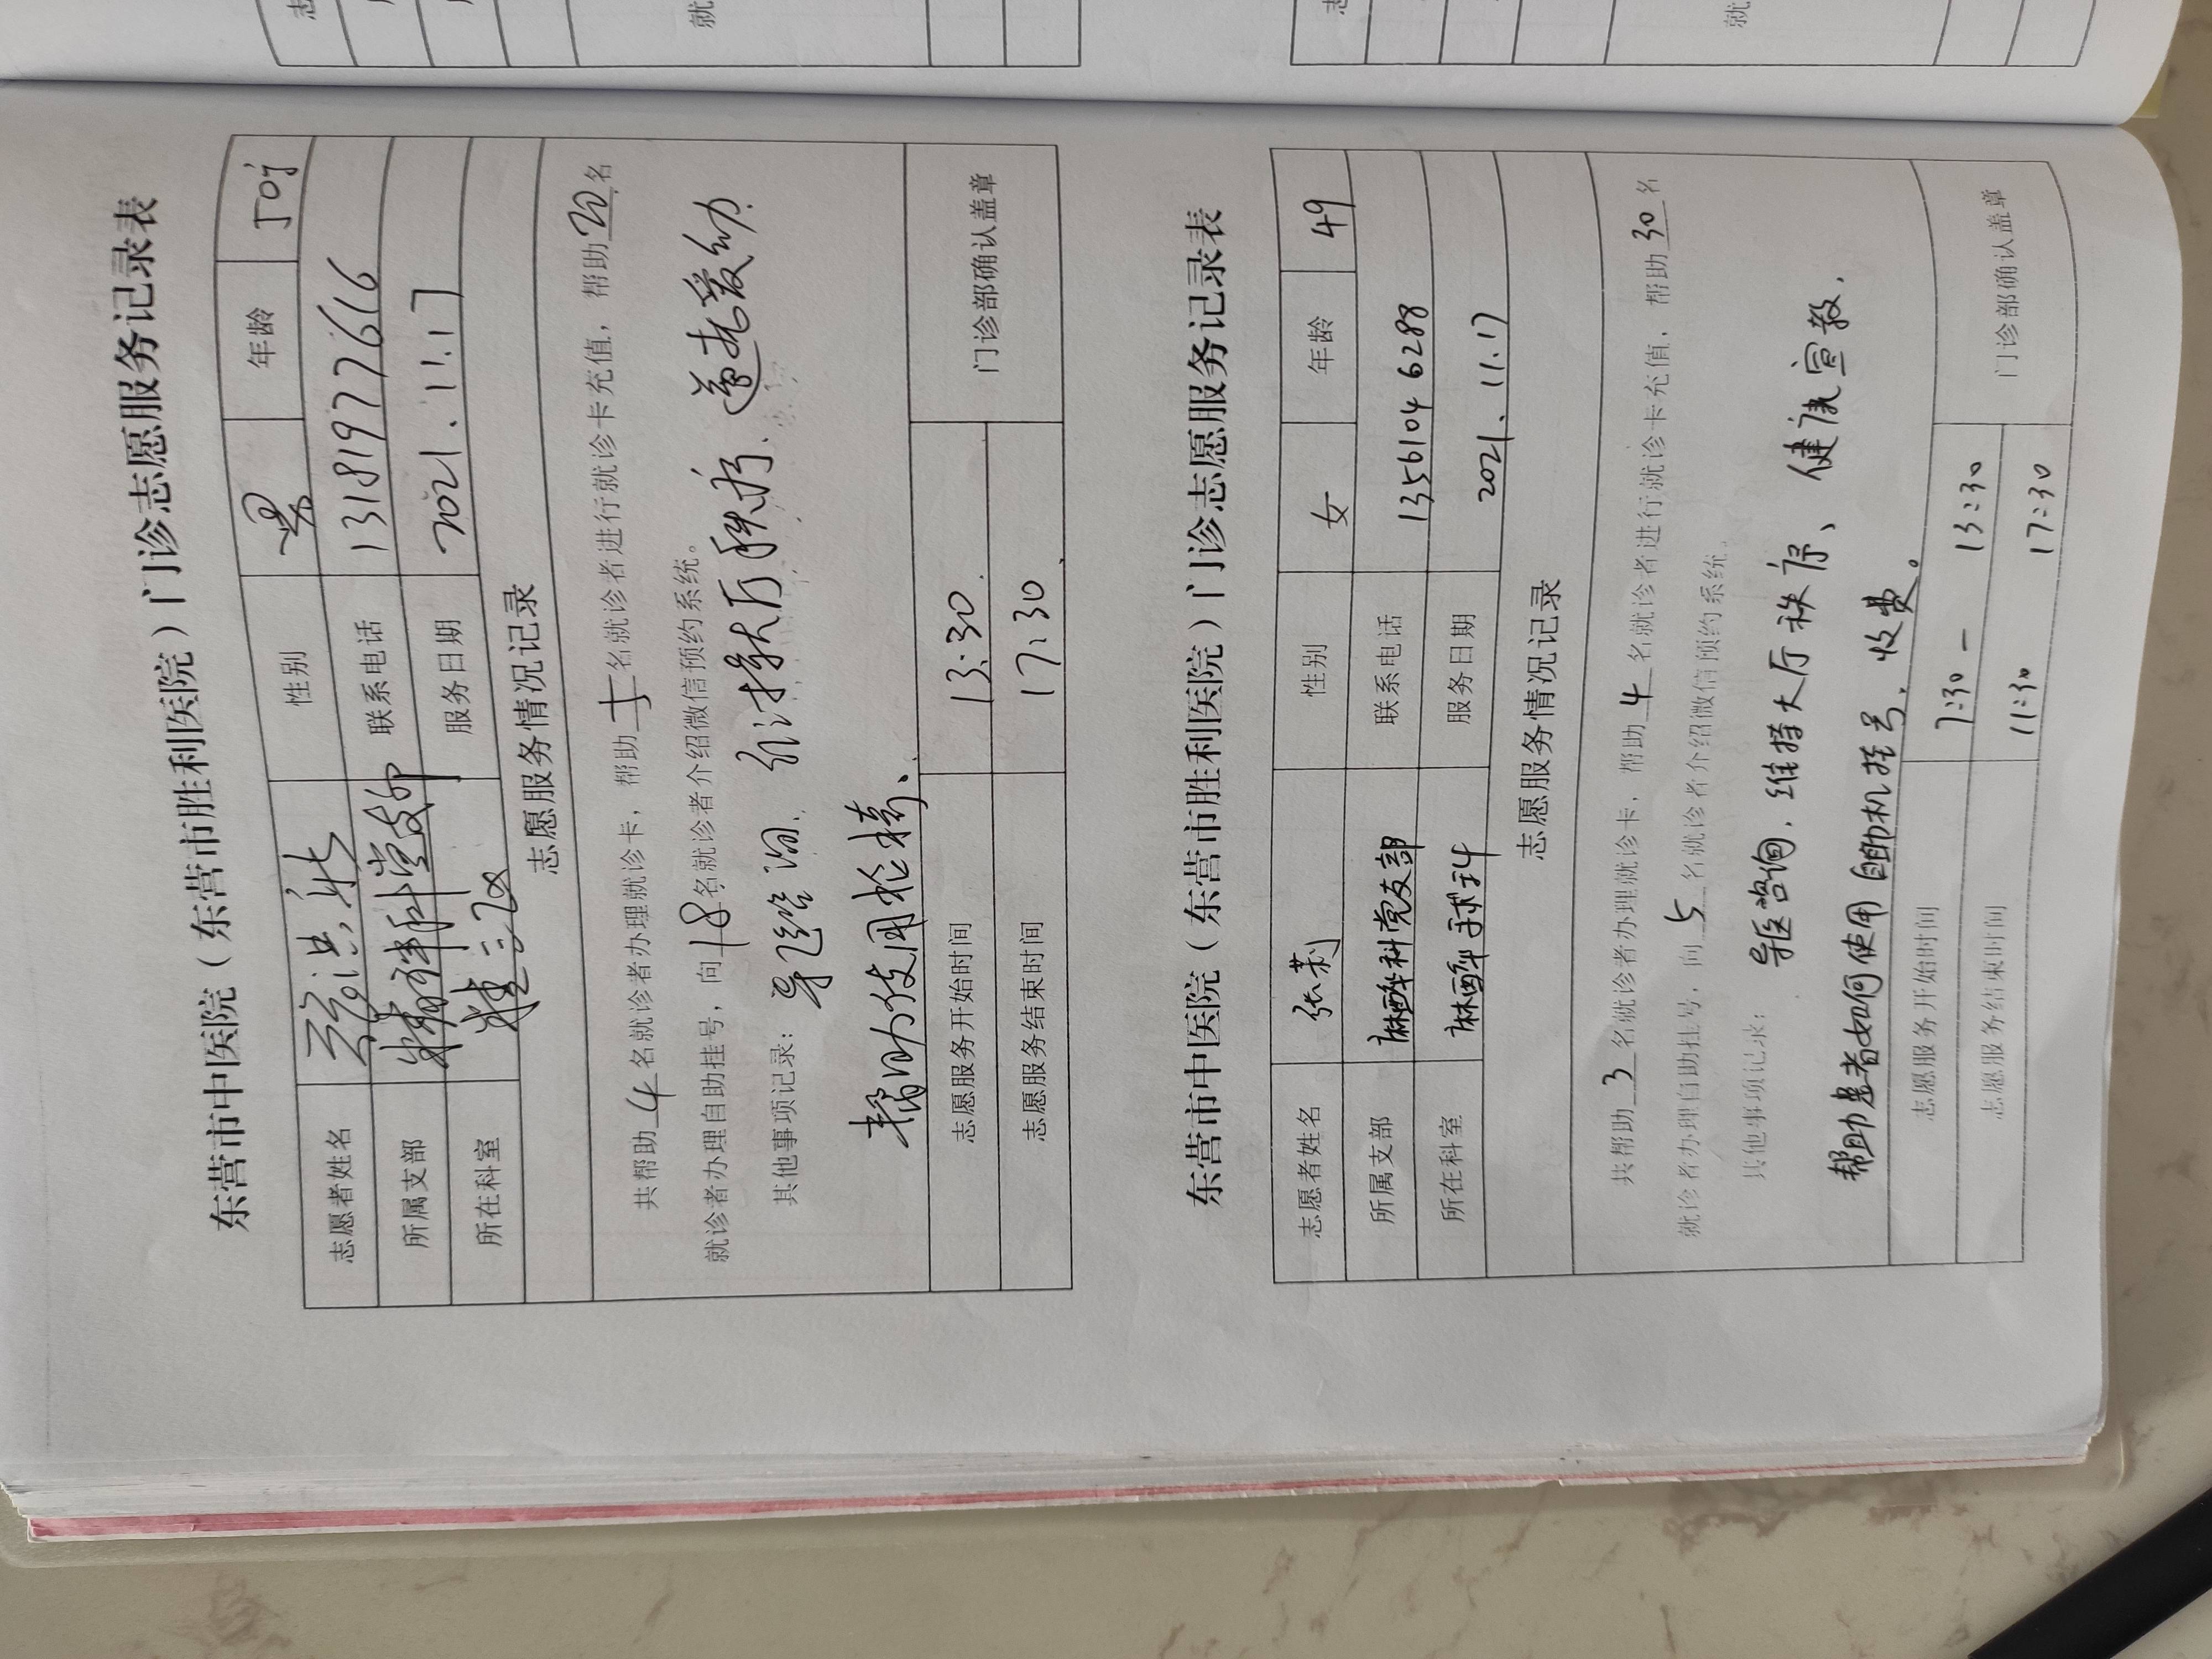 东营市中医院（东营市胜利医院）门诊志愿服务记录表
志愿者姓名 性别 男 年龄 50岁
所属支部 精神科党支部 联系电话 13181977616
所在科室 精三区 服务日期 2021.11.17
志愿服务情况记录
共帮助 4 名就诊者办理就诊卡，帮助 名就诊者进行就诊卡充值，帮助 20 名
就诊者办理自助挂号，向 18 名就诊者介绍微信预约系统。
其他事项记录： 导医咨询、维持大厅秩序、尊老爱幼
帮助使用轮椅、
志愿服务开始时间 13:30 门诊部确认盖章
志愿服务结束时间 17:30
东营市中医院（东营市胜利医院）门诊志愿服务记录表
志愿者姓名 张莉 性别 女 年龄 49
所属支部 麻醉科党支部 联系电话 13561046288
所在科室 麻醉手术科 服务日期 2021.11.17
志愿服务情况记录
共帮助 3 名就诊者办理就诊卡，帮助 4 名就诊者进行就诊卡充值，帮助 30 名
就诊者办理自助挂号，向 5 名就诊者介绍微信预约系统。
其他事项记录： 导医咨询，维持大厅秩序、健康宣教，
帮助患者如何使用自助机挂号，收费。
志愿服务开始时间 7:30 — 13:30 门诊部确认盖章
志愿服务结束时间 11:30 17:30